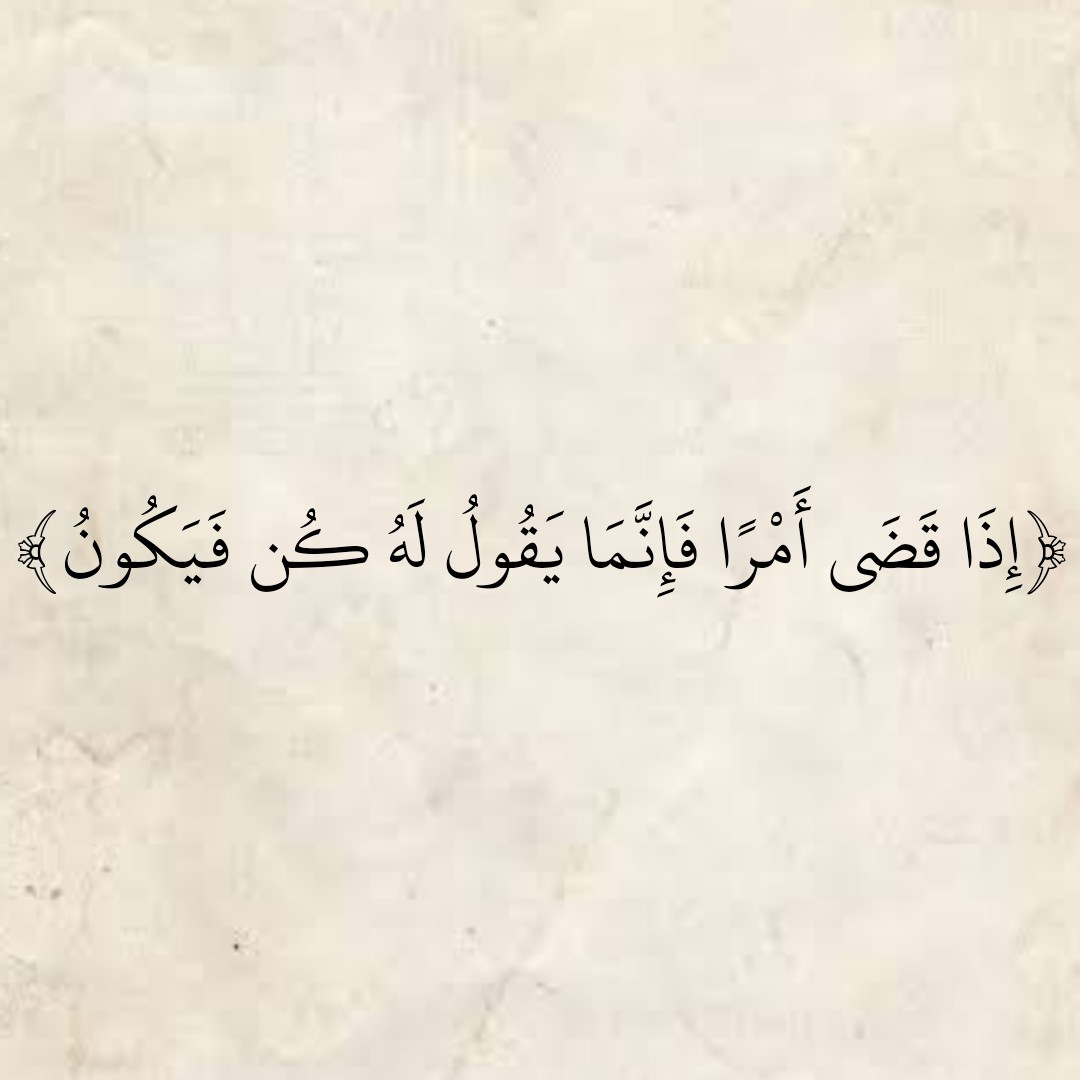 ﴿إِذَا قَضَى أَمْرًا فَإِنَّمَا يَقُولُ لَهُ كُن فَيَكُونُ﴾